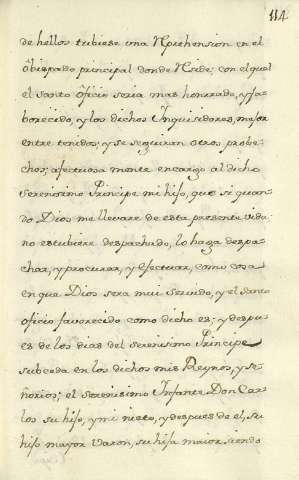 114
de hellos tubiese una Reprehension en el
Obispado principal donde Reside; con el qual
el santo oficio seria mas honrrado, y fa-
borecido, y los dichos Inquisidores, mejor
entretenidos; y se seguirian otros probe-
chos; afectuosa mente encargo al dicho
serenisimo Principe mi hijo, que si quan-
do Dios me llevare de esta presente vida
no estubiere despachado, lo haga despa-
char, y procurar, y efectuar, como cosa
en que Dios sera mui servido, y el santo
oficio favorecido como dicho es; y despu-
es de los dias del serenisimo Principe
subceda en los dichos mis Reynos, y se-
ñorios; el serenisimo Infante Don Car-
los su hijo, y mi nieto, y despues de el, su
hijo mayor varon, su hija maior siendo